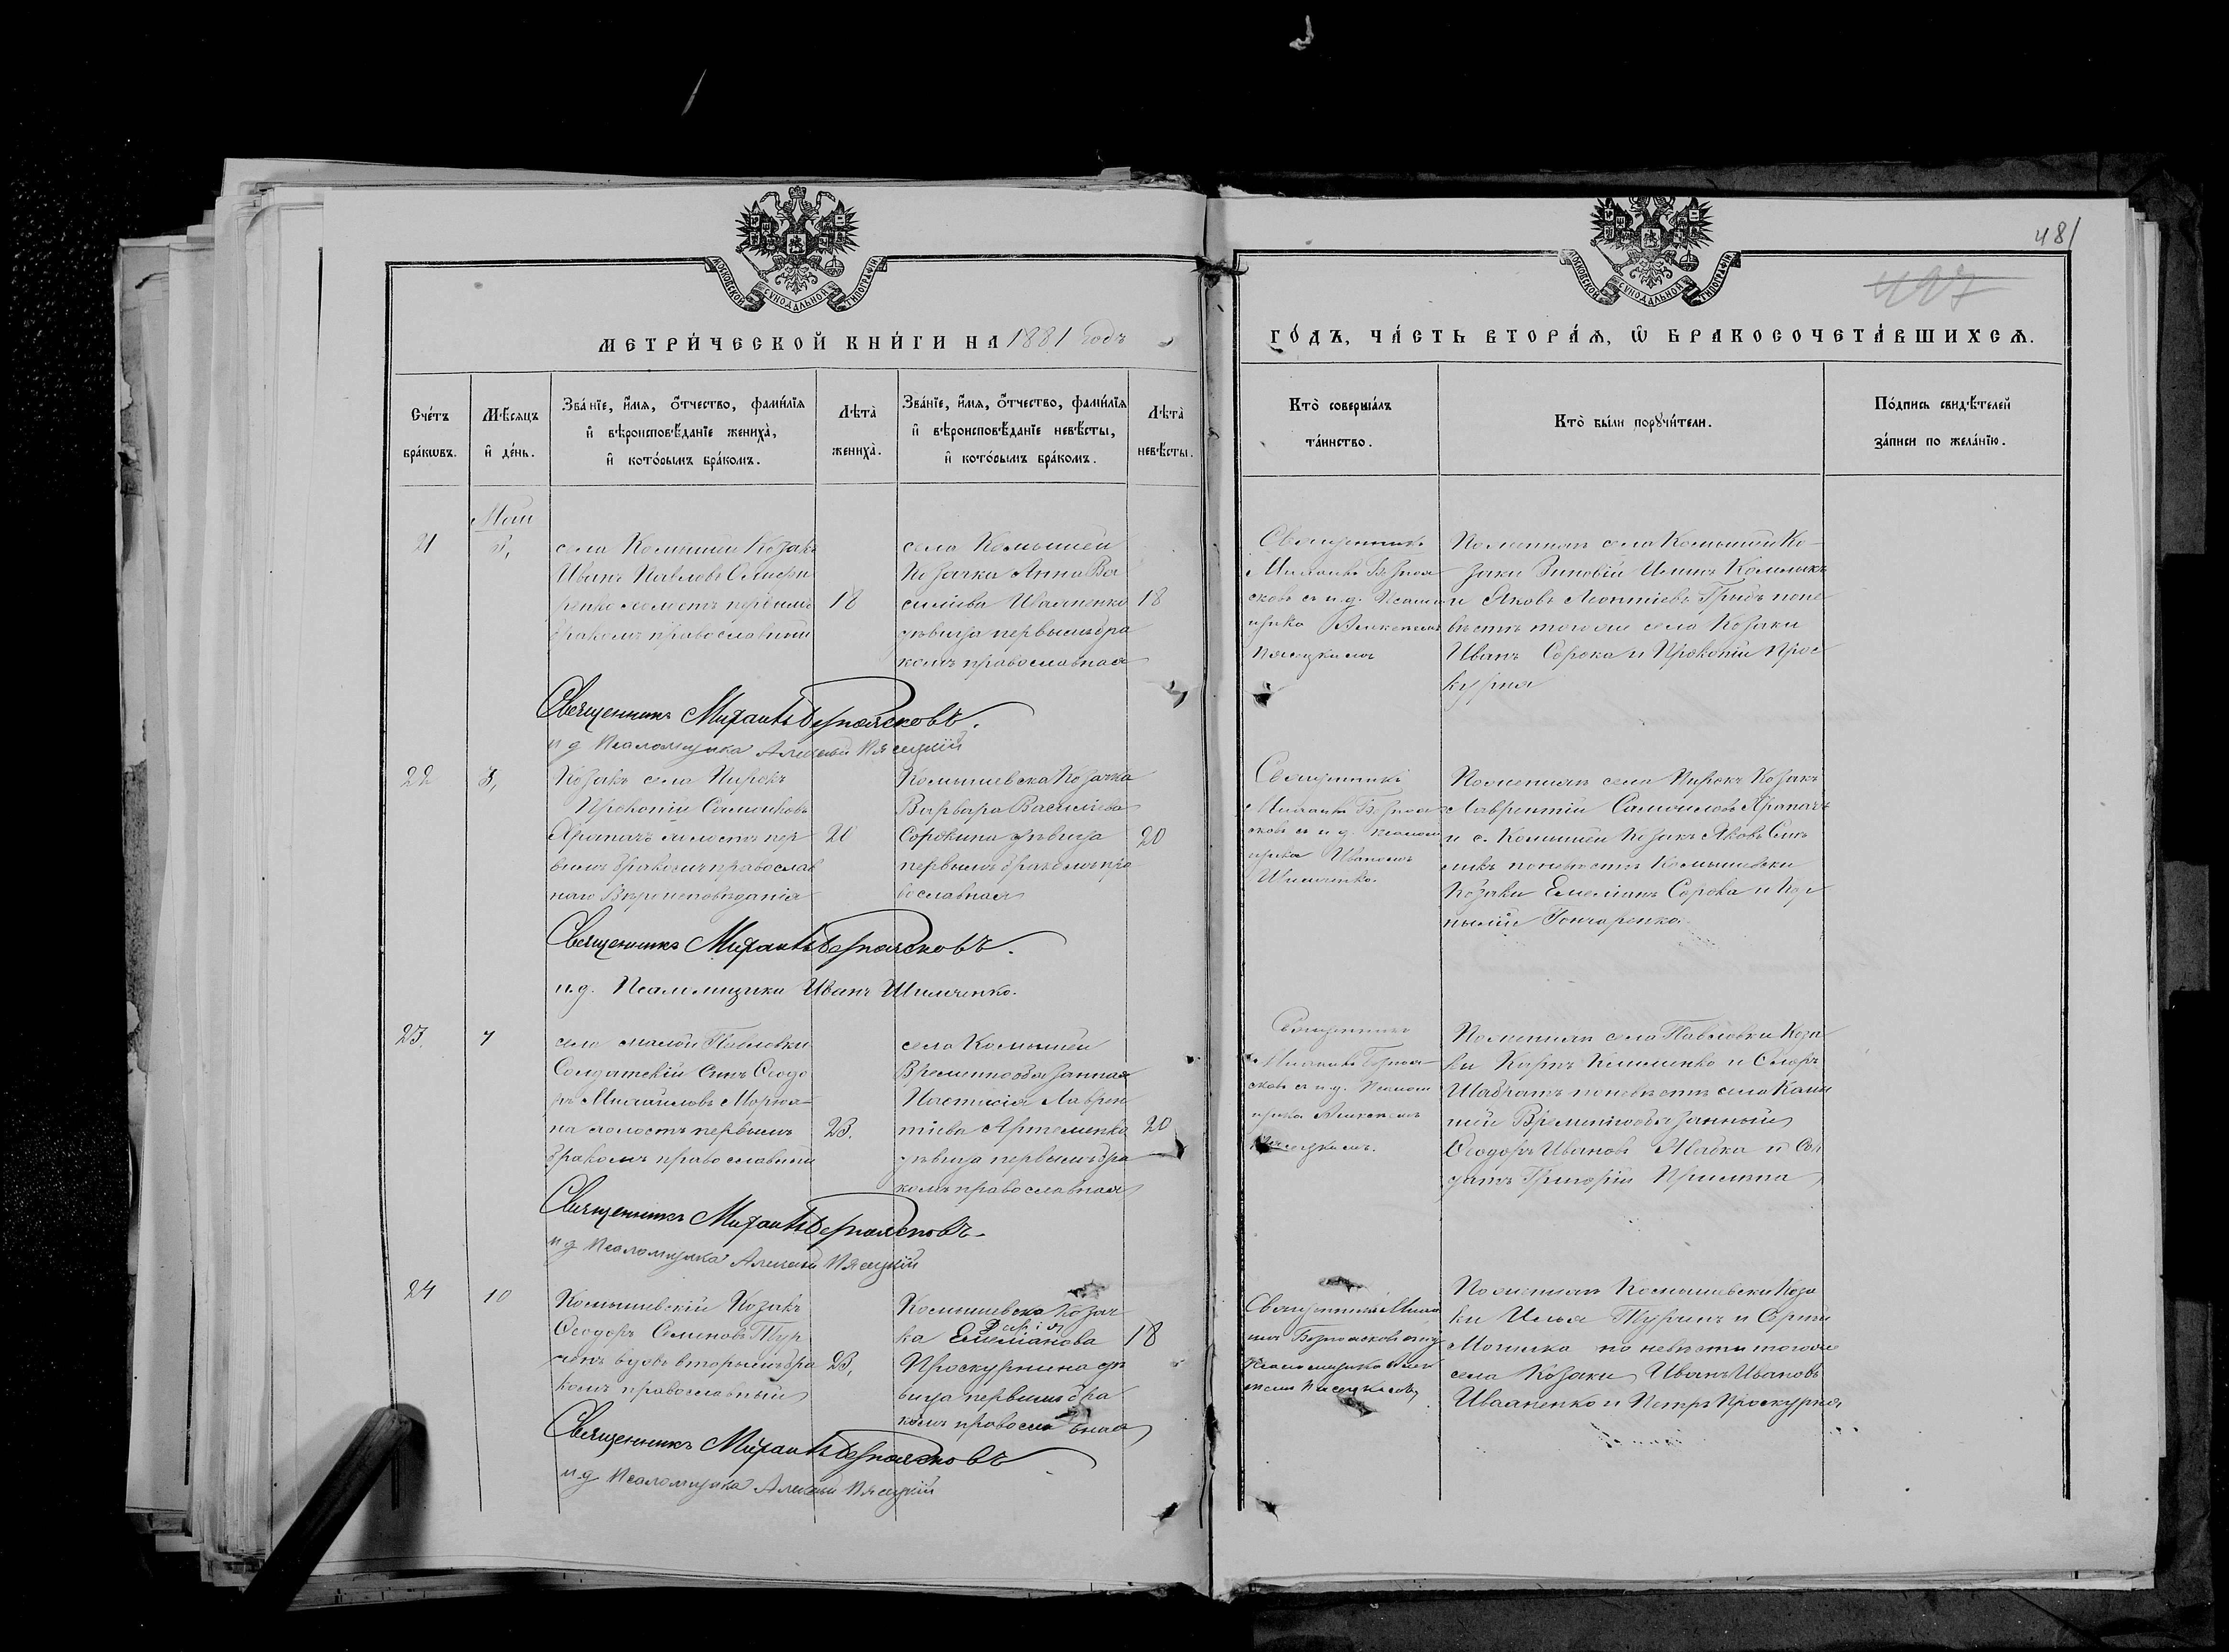 МОСКОВСКОЙ СУНОДАЛЬНОЙ ТИПОГРАФІИ
МЕТРИ́ЧЕСКОЙ КНИ́ГИ НА 1881 годъ
Сче́тъ бра́кѡвъ.
Мѣ́сяцъ и҆ де́нь.
Зва́нїе, и҆́мя, ѻ҆́тчество, фами́лїя
и҆ вѣроисповѣ́данїе жениха̀,
и҆ кото́рымъ бра́комъ.
Лѣта̀ жениха̀.
Зва́нїе, и҆́мя, ѻ҆́тчество, фами́лїя
и҆ вѣроисповѣ́данїе невѣ́сты,
и҆ кото́рымъ бра́комъ.
Лѣта̀ невѣ́сты.
Маи
21
3,
села Комышеи Козакъ
Иванъ Павловъ
холостъ первымъ
бракомъ православный
18
села Комышеи
Козачка Анна Ва
силіева Иваненко
дѣвица первымъ бра
комъ православная
18
Священникъ Михаилъ Безпоясковъ.
и д Псаломщика Алексѣй Пясецкій
22
3,
Козакъ села Пирокъ
Прокопій Самойловъ
Арапачъ холостъ пер
вымъ бракомъ православ
наго Вѣроисповѣданія
20
Комышевска Козачка
Варвара Василіева
Сорокина дѣвица
первымъ бракомъ пра
вославная
20
Священникъ Михаилъ Безпоясковъ.
и.д. Псаломщика Иванъ Шимченко.
23.
7
села малой Павловки
Солдатскій Сынъ Ѳеодо
ръ Михайловъ
холостъ первымъ
бракомъ православный
23.
села Комышеи
Временнообязанная
Настасія Лаврен
тіева Артеменко
дѣвица первымъ бра
комъ православная
20
Священникъ Михаилъ Безпоясковъ.
и д Псаломщика Алексѣй Пясецкій
24
10
Комышевскій Козакъ
Ѳеодоръ Семеновъ Тур
чинъ вдовъ вторымъ бра
комъ православный
23,
Комышевска Козач
ка Дарія Емеліанова
Проскурнина дѣ
вица первымъ бра
комъ православная
18
Священникъ Михаилъ Безпоясковъ
и.д Псаломщика Алексѣй Пясецкій
481
497
МОСКОВСКОЙ СУНОДАЛЬНОЙ ТИПОГРАФІИ
ГО́ДЪ, ЧА́СТЬ ВТОРА́Я, Ѡ҆ БРАКОСОЧЕТА́ВШИХСѦ.
Кто̀ соверша́лъ
та́инство.
Кто̀ бы́ли порꙋчи́тели.
По́дпись свидѣ́телей
за́писи по жела́нїю.
Священникъ
Михаилъ Безпоя
сковъ съ и.д. Псалом
щика Алексѣемъ
Пясецкимъ
По женихѣ села Комышеи Ко
заки Зиновій
и Яковъ Леонтіевъ по не
вѣстѣ тогоже села Козаки
Иванъ Сорока и Прокопій Прос
курня
Священникъ
Михаилъ Безпоя
сковъ съ и.д. псалом
щика Иваномъ
Шимченко.
По женихѣ села Пирокъ Козакъ
Лаврентій Самойловъ Арапачъ
и с. Комышеи Козакъ Яковъ
по невѣстѣ Комышевски
Козаки Емеліанъ Сорока и Кор
нилій Гончаренко
Священникъ
Михаилъ Безпоя
сковъ съ и.д. Псалом
щика Алексѣемъ
Пясецкимъ.
По женихѣ села Павловки Коза
ки Карпъ Клименко и
по невѣстѣ села Комы
шеи Временнообязанный
Ѳеодоръ Ивановъ и Сол
датъ Григорій
Священникъ Миха
илъ Безпоясковъ съ и д
Псаломщика Алек
сѣемъ Пясецкимъ
По женихѣ Комышевски Коза
ки Илья Турчинъ и Сергѣй
по невѣсти тогоже
села Козаки Иванъ Ивановъ
Иваненко и Петръ Проскурня